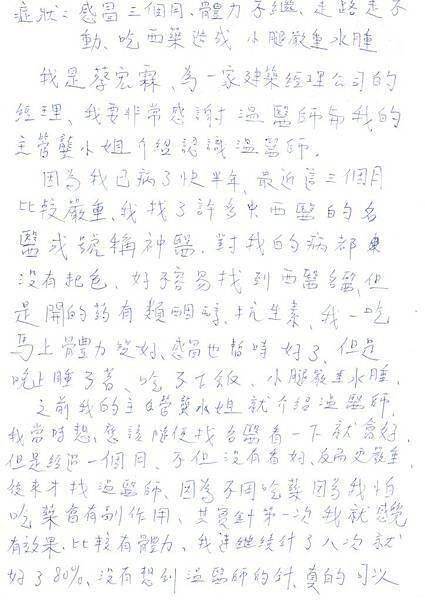 症狀：感冒三個月、體力不繼、走路走不
動、吃西藥造成 小腿嚴重水腫
我是蔡宏霖、為一家建築經理公司的
經理、我要非常感謝 溫醫師與我的
主管龔小姐介紹認識溫醫師。
因為我已病了快半年、最近這三個月
比較嚴重、我找了許多中西醫的名
醫或號稱神醫、對我的病都
沒有起色、好不容易找到西醫 但
是開的葯有類固醇、抗生素、我一吃
馬上體力變好、感冒也暫時好了、但是
晚上睡不著、吃不下飯、小腿嚴重水腫、
之前我的主管龔小姐就介紹溫醫師、
我當時想應該隨便找 醫看一下就會好、
但是經過一個月、不但沒有看好、反而更嚴重、
後來才找溫醫師、因為不用吃藥因為我怕
吃藥會有副作用、其實針第一次我就感覺
有效果、比較有體力、我連繼續針了八次就
好了80%、沒有想到溫醫師的針、真的可以